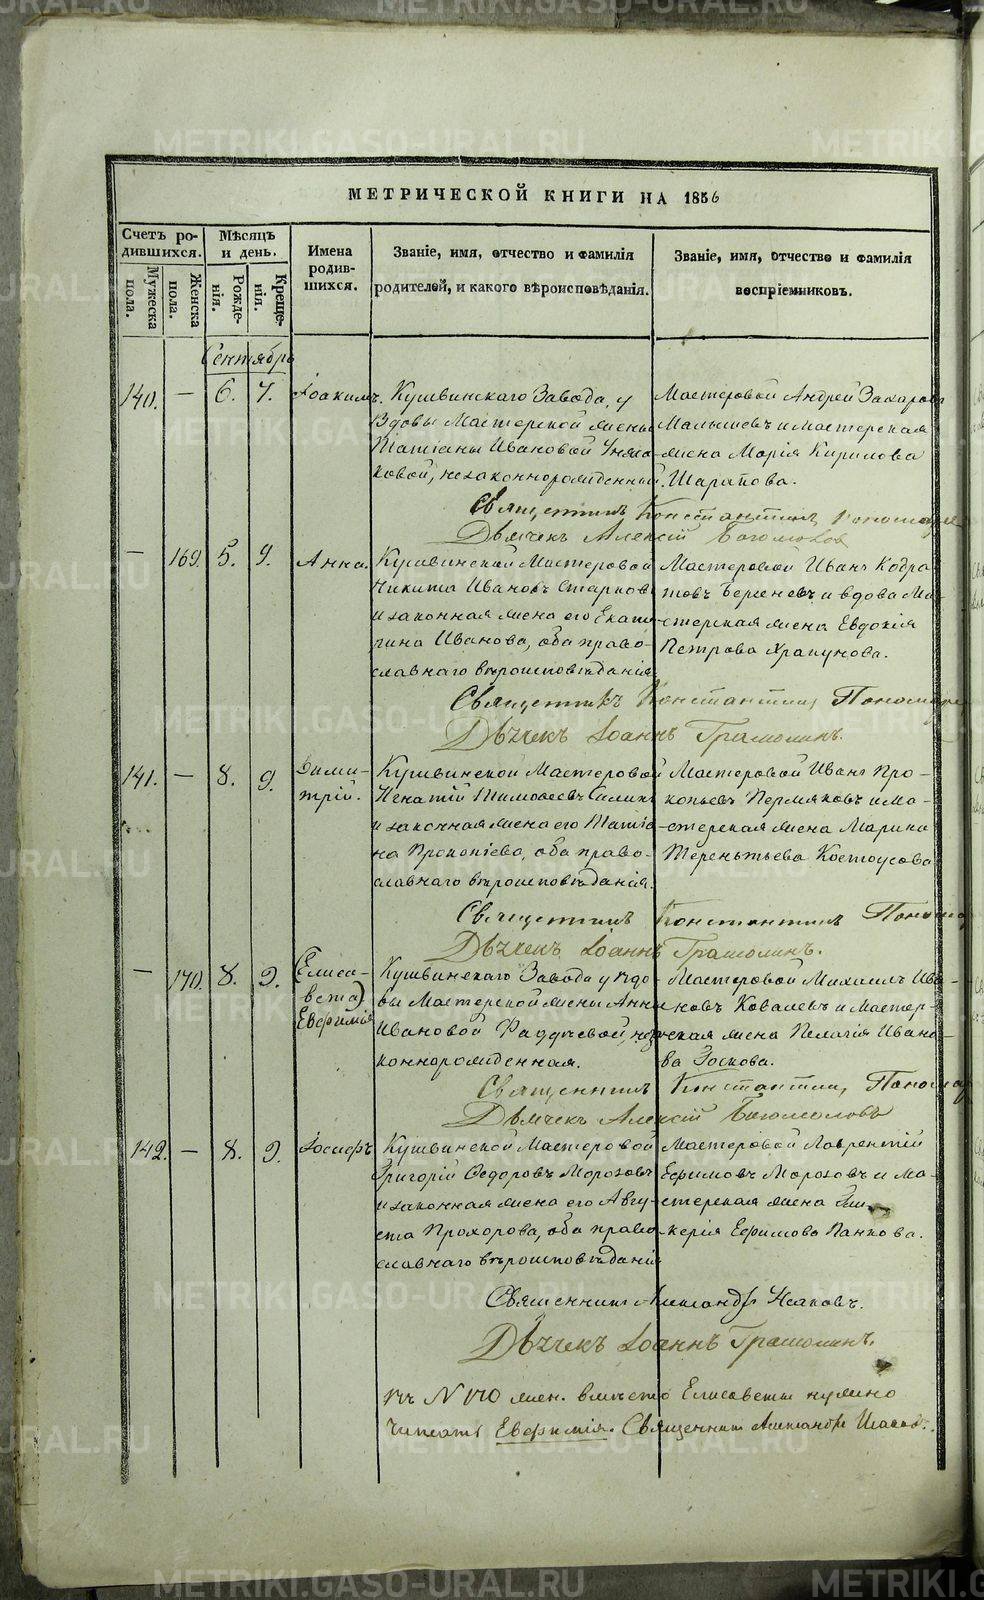 МЕТРИЧЕСКОЙ КНИГИ НА 1856
Счетъ ро-
дившихся.
Мужеска пола.
Женска пола.
Мѣсяцъ
и день.
Рожде-
нія.
Креще-
нія.
Имена
родив-
шихся.
Званіе, имя, отчество и фамилія
родителей, и какого вѣроисповѣданія.
Званіе, имя, отчество и фамилія
воспріемниковъ.
Сентябрь
140. — 6. 7. Іоакимъ. Кушвинскаго Завода, у
Вдовы Мастерской жены
Татіаны Ивановой
ковой, незаконнорожденный.
Мастеровой Андрей Захаровъ
Малышевъ и мастерская
жена Марія Кирилова
Шарапова.
Священникъ Константинъ Пономарев
Дьячекъ Алексій Богомолов
— 169. 5. 9. Анна. Кушвинской Мастеровой
Никита Ивановъ Старков
и законная жена его Екате-
рина Иванова, оба право-
славнаго вѣроисповѣданія
Мастеровой Иванъ Кодра
товъ Бересневъ и вдова Ма-
стерская жена Евдокія
Петрова Храпунова.
Священникъ Константинъ Пономаре
Дьячекъ Іоаннъ Грамолинъ.
141. — 8. 9. Дими-
трій. Кушвинской Мастеровой
Игнатій Тимофеевъ
и законная жена его Татіа-
на Прокопіева, оба право-
славнаго вѣроисповѣданія.
Мастеровой Иванъ Про-
копьевъ Пермяковъ и ма-
стерская жена Марина
Терентьева Костоусова
Священникъ Константинъ Поном
Дьячекъ Іоаннъ Грамолинъ.
— 170. 8. 9. (Елиса-
вета)
Евфимія Кушвинскаго Завода у вдо-
вы Мастерской жены Анны
Ивановой Фаддѣевой, неза
коннорожденная.
Мастеровой Михаилъ Ива-
новъ Ковалевъ и мастер-
ская жена Пелагія Ивано-
ва Зоскова.
Священникъ Константинъ Пономар
Дьячекъ Алексій Богомоловъ
142. — 8. 9. Іосифъ Кушвинской Мастеровой
Григорій Федоровъ Морозовъ
и законная жена его Авгу-
ста Прохорова, оба право-
славнаго вѣроисповѣданія
Мастеровой Лаврентій
Ефимовъ Морозовъ и ма-
стерская жена Гли-
керія Ефимова Панкова.
Священникъ Александръ
Дьячекъ Іоаннъ Грамолинъ.
въ N 170 жен. вмѣсто Елисаветы нужно
читать Евфимія. Священникъ Александръ
METRIKI.GASO-URAL.RU